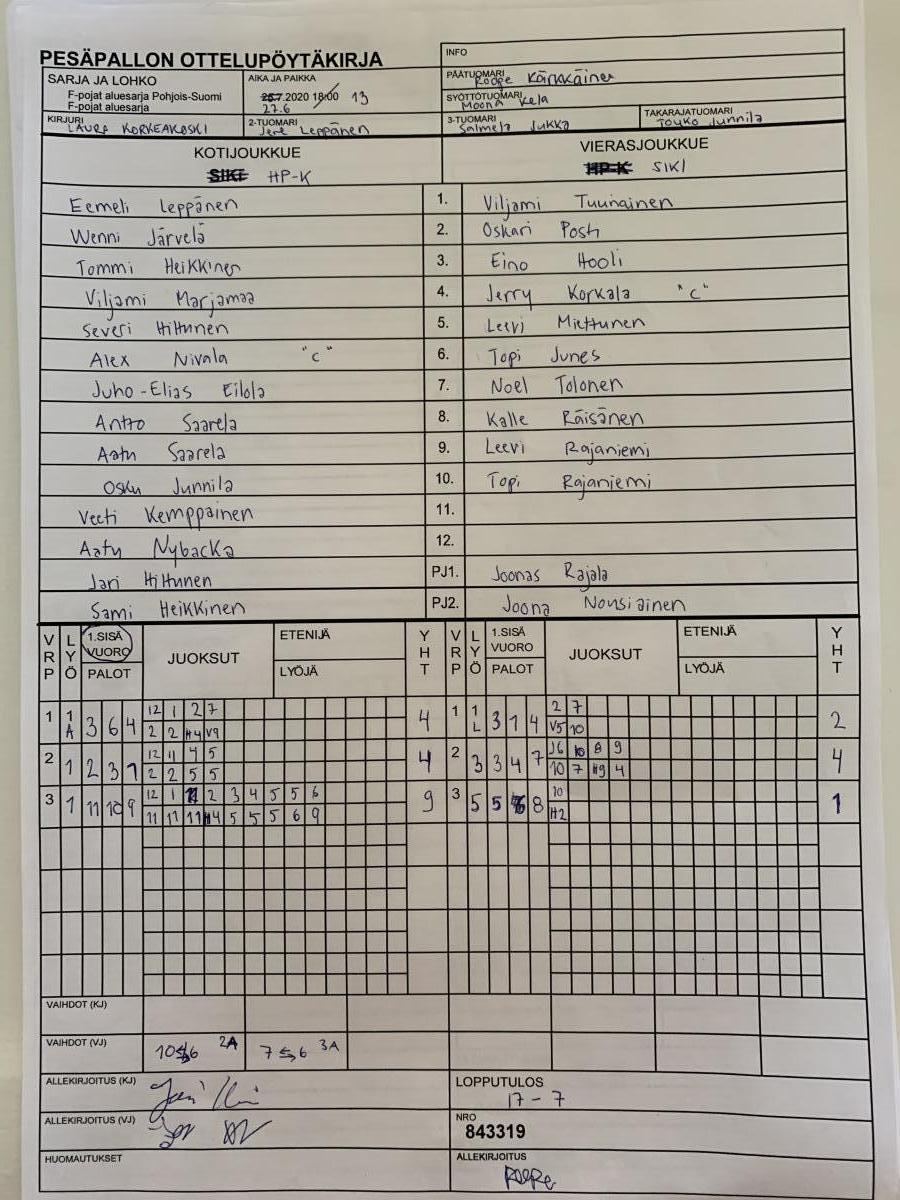 PESÄPALLON OTTELUPÖYTÄKIRJA
INFO
SARJA JA LOHKO
F-pojat aluesarja Pohjois-Suomi
F-pojat aluesarja
AIKA JA PAIKKA
25.7.2020 18:00 13
27.6
PÄÄTUOMARI
Roope Kärkkäinen
SYÖTTÖTUOMARI
Moona Kela
KIRJURI
LAURA KORKEAKOSKI
2-TUOMARI
Jere Leppänen
3-TUOMARI
Salmela Jukka
TAKARAJATUOMARI
Jouko Junnila
KOTIJOUKKUE
SIKI HP-K
VIERASJOUKKUE
HP-K SIKI
Eemeli Leppänen 1. Viljami Tuunainen
Wenni Järvelä 2. Oskari Posti
Tommi Heikkinen 3. Eino Hooli
Viljami Marjamaa 4. Jerry Korkala "C"
Severi Hiltunen 5. Leevi Miettunen
Alex Nivala "C" 6. Topi Junes
Juho-Elias Eilola 7. Noel Tolonen
Antto Saarela 8. Kalle Räisänen
Aatu Saarela 9. Leevi Rajaniemi
Osku Junnila 10. Topi Rajaniemi
Veeti Kemppainen 11.
Aatu Nybacka 12.
Jari Hiltunen PJ1. Joonas Rajala
Sami Heikkinen PJ2. Joona Nousiainen
VRP LYÖ 1.SISÄ VUORO PALOT JUOKSUT ETENIJÄ LYÖJÄ YHT VRP LYÖ 1.SISÄ VUORO PALOT JUOKSUT ETENIJÄ LYÖJÄ YHT
1 1A 3 6 4 12 1 2 7 4 1 1L 3 1 4 2 7 2
2 2 H4 V9 V5 10
2 1 2 3 7 12 11 4 5 4 2 3 3 4 7 J6 10 8 9 4
2 2 5 5 10 7 H9 4
3 1 11 10 9 12 1 2 3 4 5 5 6 9 3 5 5 8 10 1
11 11 11 H4 5 5 5 6 9 H2
VAIHDOT (KJ)
VAIHDOT (VJ) 10 6 2A 7 6 3A
ALLEKIRJOITUS (KJ)
LOPPUTULOS
17 - 7
ALLEKIRJOITUS (VJ)
NRO
843319
HUOMAUTUKSET
ALLEKIRJOITUS
Roope